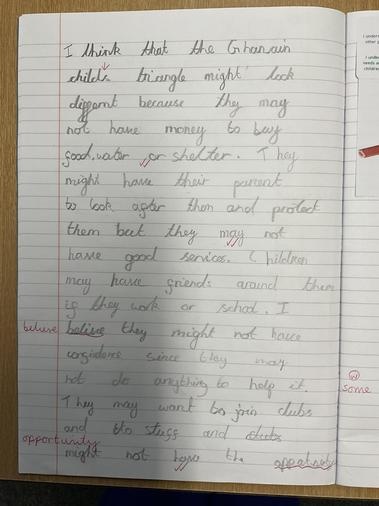 I think that the Ghanain
childs triangle might look
differnt because they may
not have money to buy
food, water or shelter. They
might have their parent
to look after them and protect
them but they may not
have good services. Children
may have friends around them
if they work or school. I
believe belive they might not have
confidence since they may
not do anything to help it.
some
They may want to join clubs
and do stuff and clubs
opportunity
might not have the oppatunity